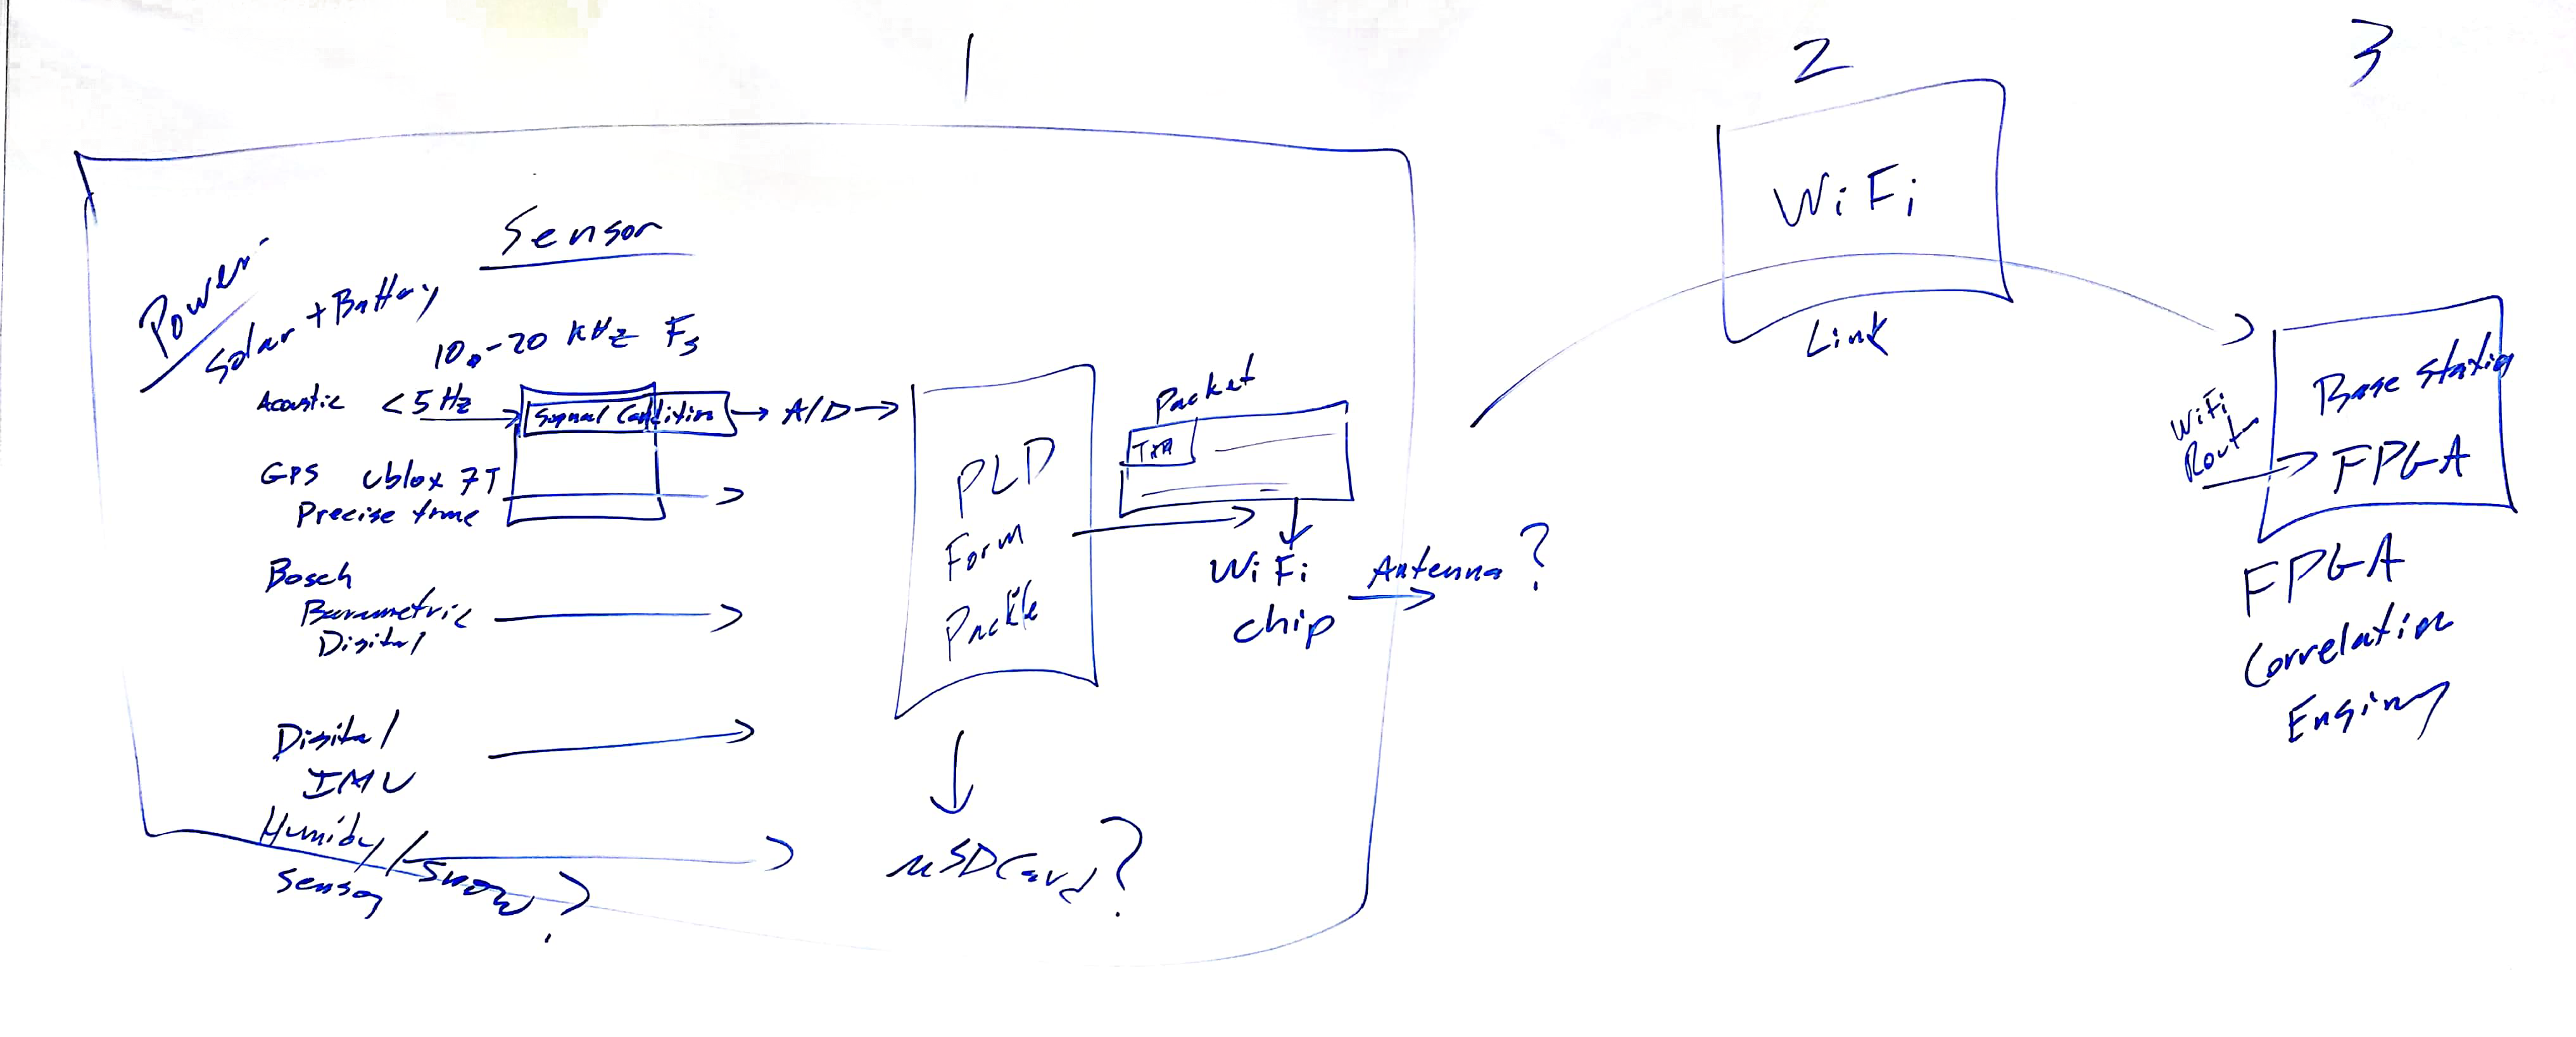 1
2
3
Sensor
Power
Solar + Battery
10.-20 kHz Fs
Acoustic <5 Hz
Signal Condition
A/D
GPS Ublox 7T
Precise time
Bosch
Barametric
Digital
Digital
IMU
Humidty
Sensor
/ Snow ?
PLD
Form
Packte
uSDCard?
Packet
WiFi
chip
Antenna?
WiFi
Link
WiFi
Rout
Base Station
FPGA
FPGA
Correlation
Engine